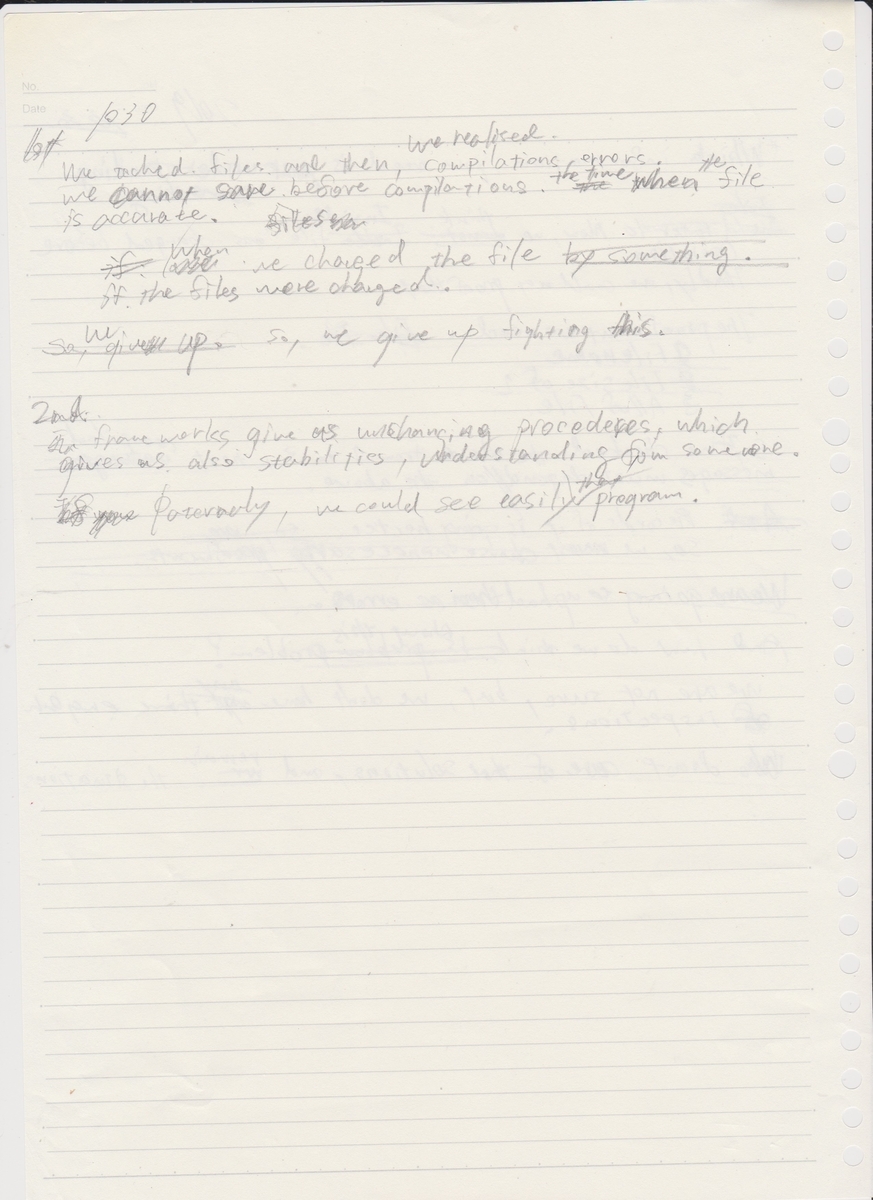 No.
Date 1030
1st
we realised.
We ached files and then, compilations errors.
we cannot save before compilations. the time when the file
is accurate.
if when we changed the file by something.
if the files were changed.
So, we give up. so, we give up fighting this.
2nd.
frameworks give us unchanging procederes, which
gives us also stabilities, understanding from someone.
we could see easily that program.